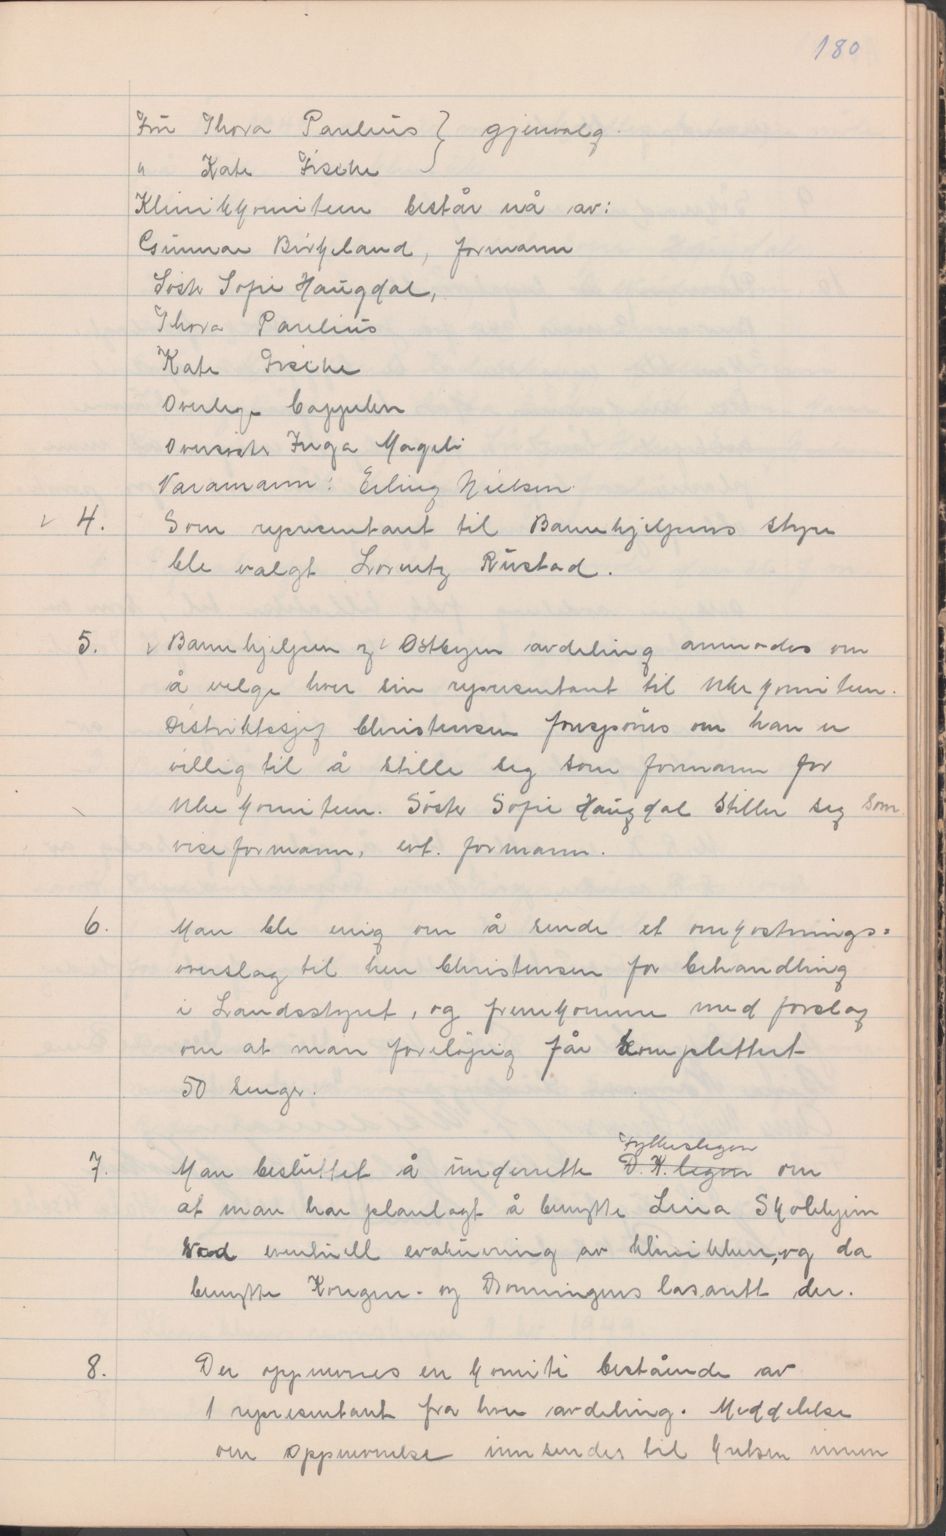 180
Frü Thora Paulüs } gjenvalg.
" Kate Fische }
Klinikkomiteen består nå av:
Gunnar Birkeland, formann
Søster Sofie Haugdal,
Thora Paulius
Kate Fische
Overlege Cappelen
Oversøster Inga Mageli
Varamann: Erling Nielsen.
4. Som representant til Barnehjelpens styre
ble valgt Lorentz Rustad.
5. Barnehjelpen og Østbyen avdeling anmodes om
å velge hver sin representant til Ukekomiteen.
Distriktssjef Christensen forespørres om han er
villig til å stille seg som formann for
Ukekomiteen. Søster Sofie Haugdal stiller seg som
viseformann, evt. formann.
6. Man ble enig om å sende et omkostnings=
overslag til herr Christensen for behandling
i Landsstyret, og fremkomme med forslag
om at man foreløpig får komplettert
50 senger.
Fylkeslegen
7. Man besluttet å underrette D.K. legen om
at man har planlagt å benytte Lina Skolehjem
ved eventuell evakuering av klinikken, og da
benytte Kongen- og Dronningens lasarett der.
8. Der oppnevnes en komité bestående av
1 representant fra hver avdeling. Meddelelse
om oppnevnelse innsendes til kretsen innen